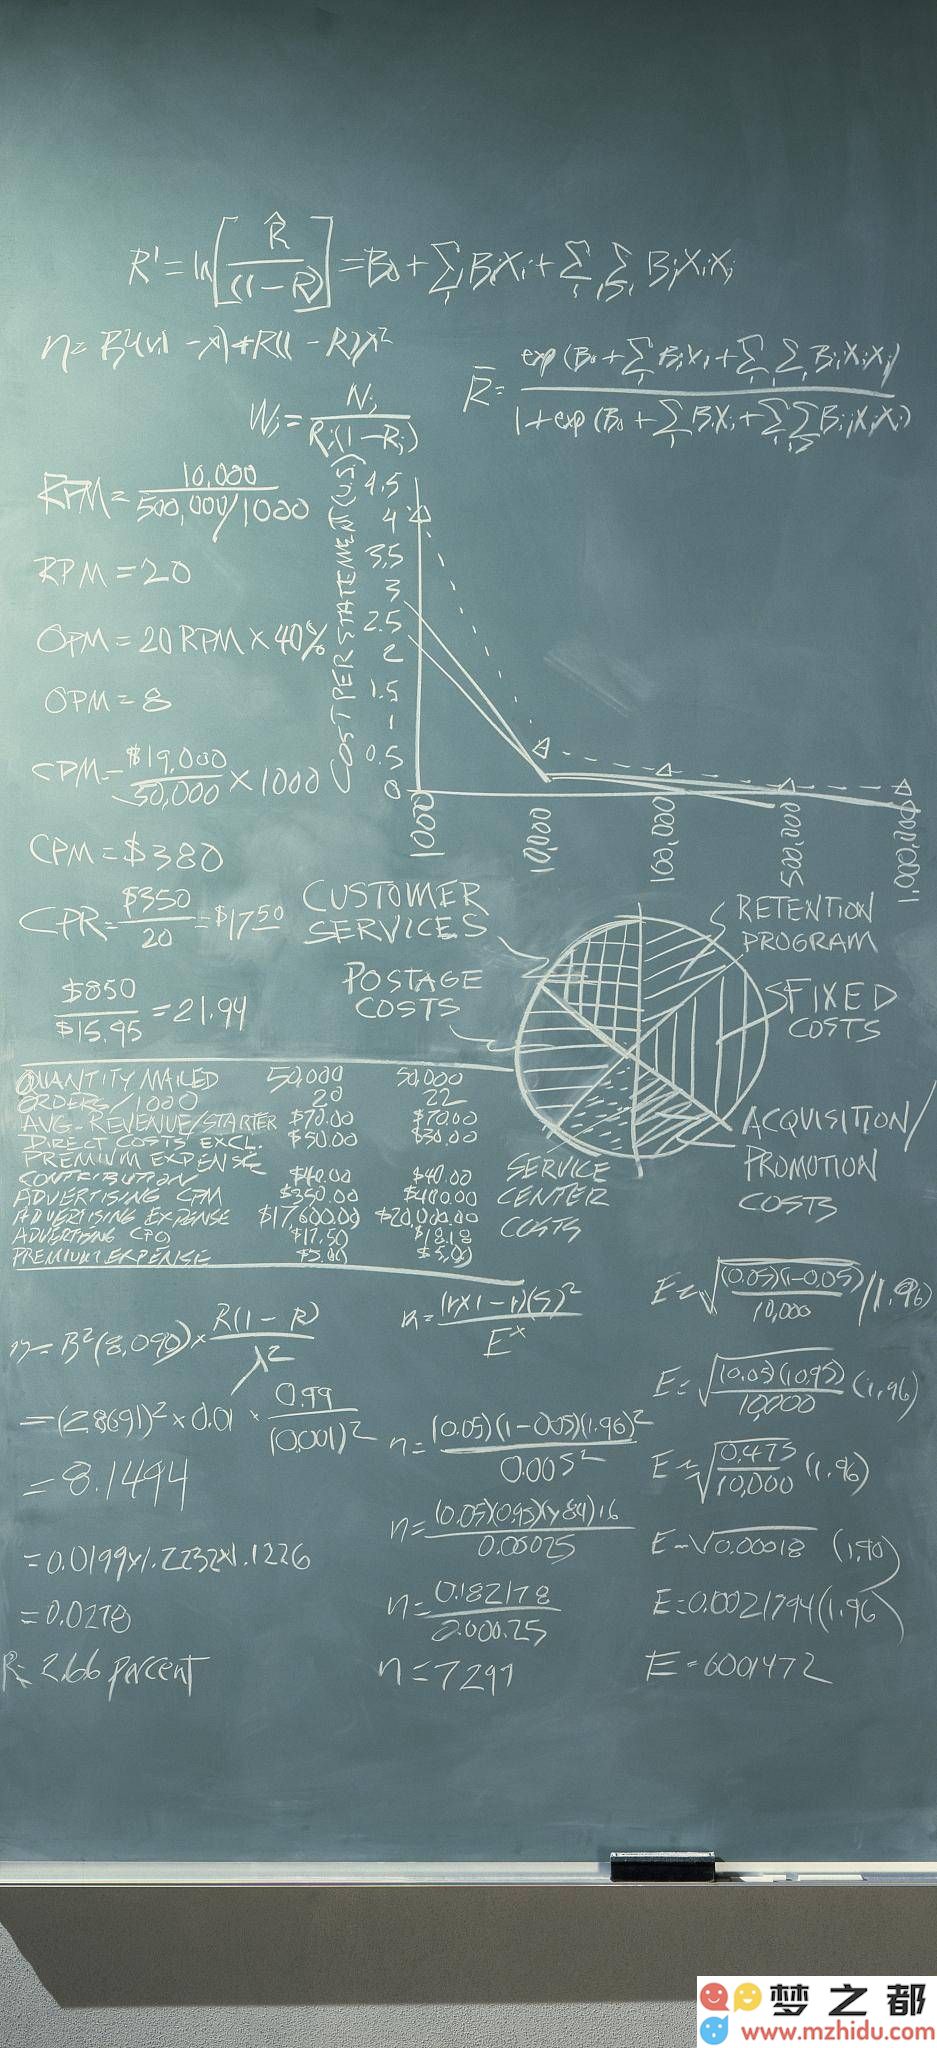 R' = ln[R̂/(1-R)] = B₀ + Σ BᵢXᵢ + Σ Σ BᵢXᵢXⱼ
exp(B₀ + Σ BᵢXᵢ + Σ Σ BᵢⱼXᵢXⱼ)
R̄ =
1 + exp(B₀ + Σ BᵢXᵢ + Σ Σ BᵢⱼXᵢXⱼ)
Wⱼ = Nⱼ/Rⱼ(1-Rⱼ)
RPM = 10,000/500,000/1000
RPM = 20
OPM = 20 RPM × 40%
OPM = 8
CPM = $19,000/50,000 × 1000
CPM = $380
CPR = $350/20 = $17.50
$850/$15.95 = 21.94
COST PER STATEMENT (U.S.)
4.5
4
3.5
3
2.5
2
1.5
1
0.5
0
1000
10,000
100,000
500,000
1,000,000
CUSTOMER
SERVICES
POSTAGE
COSTS
RETENTION
PROGRAM
FIXED
COSTS
ACQUISITION/
PROMOTION
COSTS
SERVICE
CENTER
COSTS
QUANTITY MAILED 50,000 50,000
ORDERS/1000 20 22
AVG. REVENUE/STARTER $70.00 $70.00
DIRECT COSTS EXCL. $30.00 $30.00
PREMIUM EXPENSE
CONTRIBUTION $40.00 $40.00
ADVERTISING CPM $350.00 $400.00
ADVERTISING EXPENSE $17,600.00 $20,000.00
ADVERTISING CPO $17.50 $18.18
PREMIUM EXPENSE $5.00 $5.00
n = B²(8,090) × R(1-R)/λ²
= (2.8691)² × 0.01 × 0.99/(0.001)²
= 8.1494
= 0.0199×1.2232×1.1226
= 0.0278
R = 2.66 percent
n = (r×1-r)(5)²/Eˣ
n = (0.05)(1-0.05)(1.96)²/0.005²
n = 0.182178/0.000.25
n = 7291
E = √(0.05)(1-0.05)/10,000 (1.96)
E = √(0.05)(0.95)/10,000 (1.96)
E = √0.475/10,000 (1.96)
E = √0.00018 (1.90)
E = 0.0021794(1.96)
梦之都
www.mzhidu.com